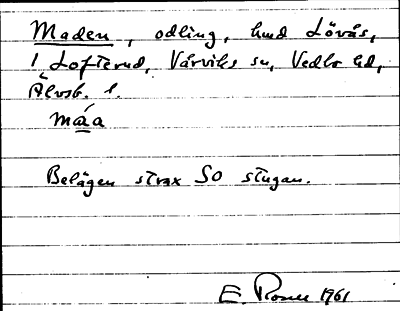 Maden, odling, hmd Lövås,
1 Lofterud, Vårviks sn, Vedbo hd,
Älvsb. l.
máa
Belägen strax SO stugan.
E. Rosell 1961